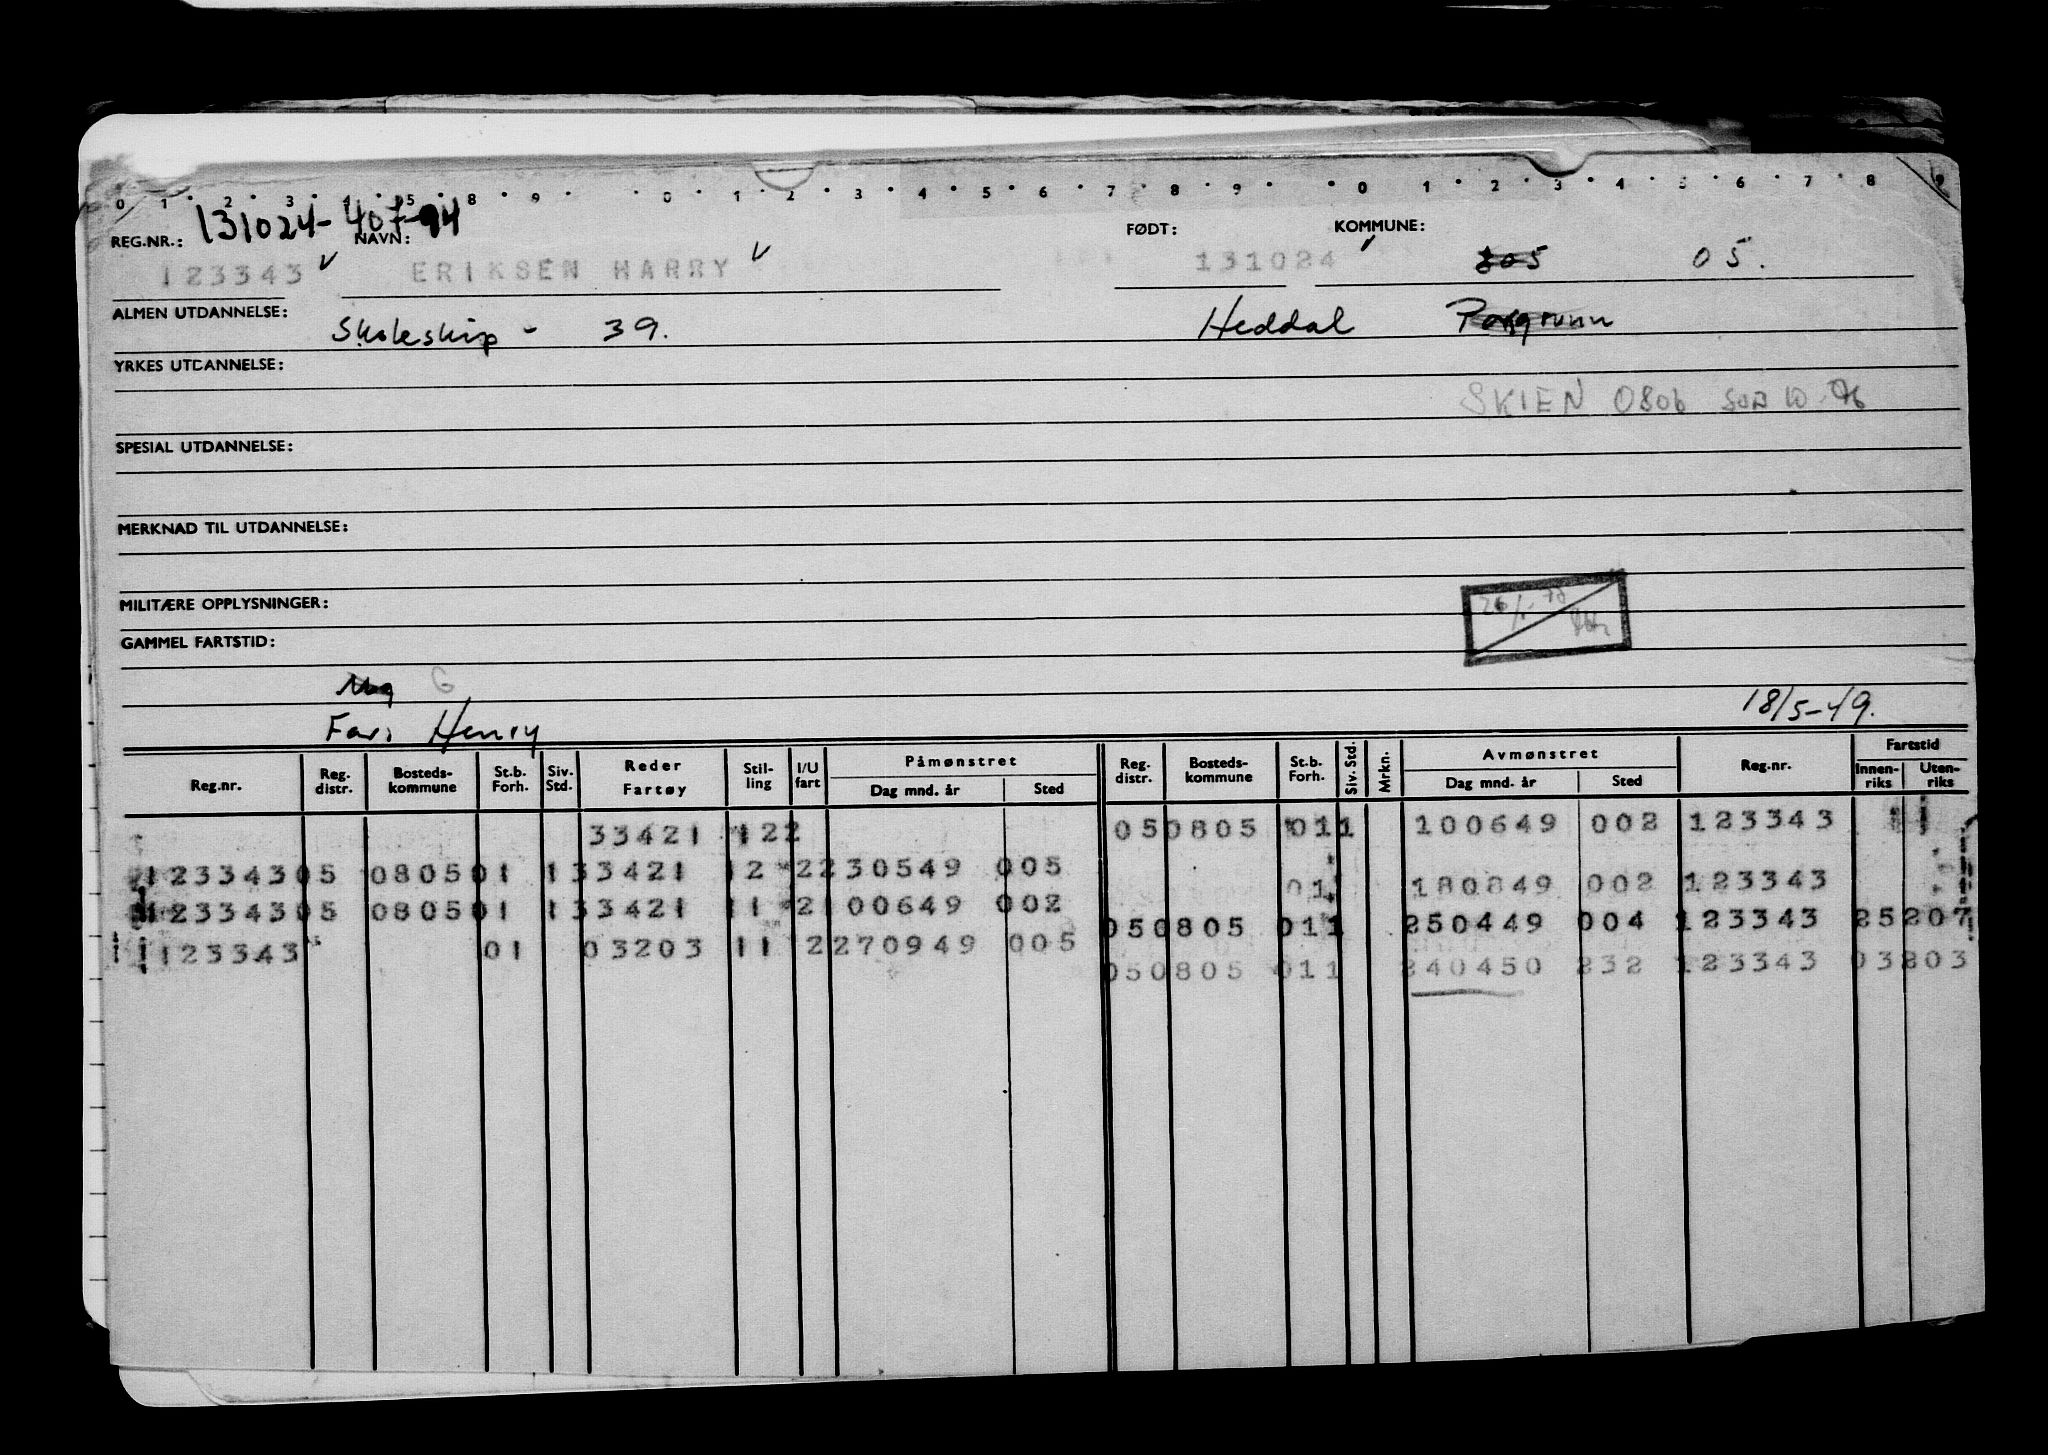 0 1 2 3 4 5 8 9 0 1 2 3 4 5 6 7 8 9 0 1 2 3 4 5 6 7 8 9
REG.NR.: 131024-407-94 NAVN: FØDT: KOMMUNE:
123343 ERIKSEN HARRY 131024 805 05.
ALMEN UTDANNELSE: Skoleskip - 39. Heddal Porsgrunn
YRKES UTDANNELSE:
SKIEN 0806
SPESIAL UTDANNELSE:
MERKNAD TIL UTDANNELSE:
MILITÆRE OPPLYSNINGER:
GAMMEL FARTSTID:
G
Far: Henry 18/5-49.
Reg.nr. Reg. distr. Bosteds-kommune St.b. Forh. Siv. Std. Reder Fartøy Stil-ling I/U fart Påmønstret Dag mnd. år Sted Reg. distr. Bosteds-kommune St.b. Forh. Siv. Std. Mrkn. Avmønstret Dag mnd. år Sted Reg.nr. Fartstid Innen-riks Uten-riks
33421 122 050805 011 100649 002 123343
12334305 080501 133421 12 2230549 005
011 180849 002 123343
12334305 080501 133421 11 2100649 002
050805 011 250449 004 123343 25207
123343 01 03203 11 2270949 005
050805 011 240450 232 123343 03203